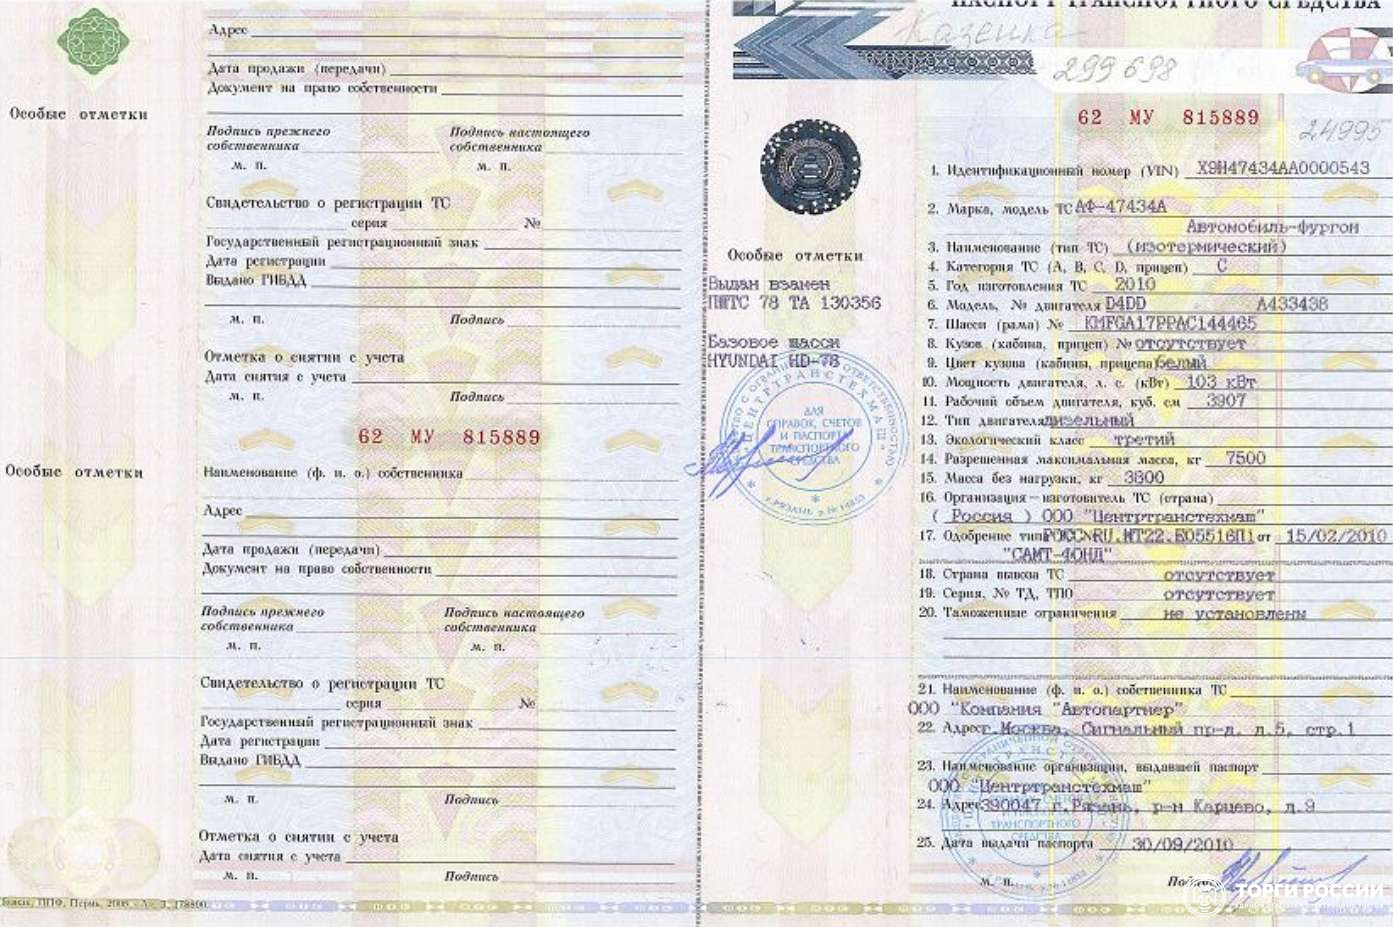 Особые отметки
Адрес
Дата продажи (передачи)
Документ на право собственности
Подпись прежнего собственника
Подпись настоящего собственника
м. п.
м. п.
Свидетельство о регистрации ТС
серия №
Государственный регистрационный знак
Дата регистрации
Выдано ГИБДД
м. п. Подпись
Отметка о снятии с учета
Дата снятия с учета
м. п. Подпись
62 МУ 815889
Особые отметки
Наименование (ф. и. о.) собственника
Адрес
Дата продажи (передачи)
Документ на право собственности
Подпись прежнего собственника
Подпись настоящего собственника
м. п.
м. п.
Свидетельство о регистрации ТС
серия №
Государственный регистрационный знак
Дата регистрации
Выдано ГИБДД
м. п. Подпись
Отметка о снятии с учета
Дата снятия с учета
м. п. Подпись
ПАСПОРТ ТРАНСПОРТНОГО СРЕДСТВА
299698
62 МУ 815889
24995
Особые отметки
Выдан взамен
ППТС 78 ТА 130356
Базовое шасси
HYUNDAI HD-78
ДЛЯ
СПРАВОК, СЧЕТОВ
И ПАСПОРТ
ТРАНСПОРТНОГО
СРЕДСТВА
1. Идентификационный номер (VIN) X9H47434AA0000543
2. Марка, модель ТС АФ-47434А
Автомобиль-фургон
3. Наименование (тип ТС) (изотермический)
4. Категория ТС (А, В, С, D, прицеп) С
5. Год изготовления ТС 2010
6. Модель, № двигателя D4DD A433438
7. Шасси (рама) № KMFGA17PPAC144465
8. Кузов (кабина, прицеп) № отсутствует
9. Цвет кузова (кабины, прицепа) белый
10. Мощность двигателя, л. с. (кВт) 103 кВт
11. Рабочий объем двигателя, куб. см 3907
12. Тип двигателя дизельный
13. Экологический класс третий
14. Разрешенная максимальная масса, кг 7500
15. Масса без нагрузки, кг 3800
16. Организация-изготовитель ТС (страна)
( Россия ) ООО "Центртранстехмаш"
17. Одобрение типа РОСС RU.МТ22.Е05516П1 от 15/02/2010
"САМТ-ФОНД"
18. Страна вывоза ТС отсутствует
19. Серия, № ТД, ТПО отсутствует
20. Таможенные ограничения не установлены
21. Наименование (ф. и. о.) собственника ТС
ООО "Компания "Автопартнер"
22. Адрес г.Москва, Сигнальный пр-д, д.5, стр.1
23. Наименование организации, выдавшей паспорт
ООО "Центртранстехмаш"
24. Адрес 390047 г.Рязань, р-н Карцево, д.9
25. Дата выдачи паспорта 30/09/2010
м. п. Подпись
ТОРГИ РОССИИ